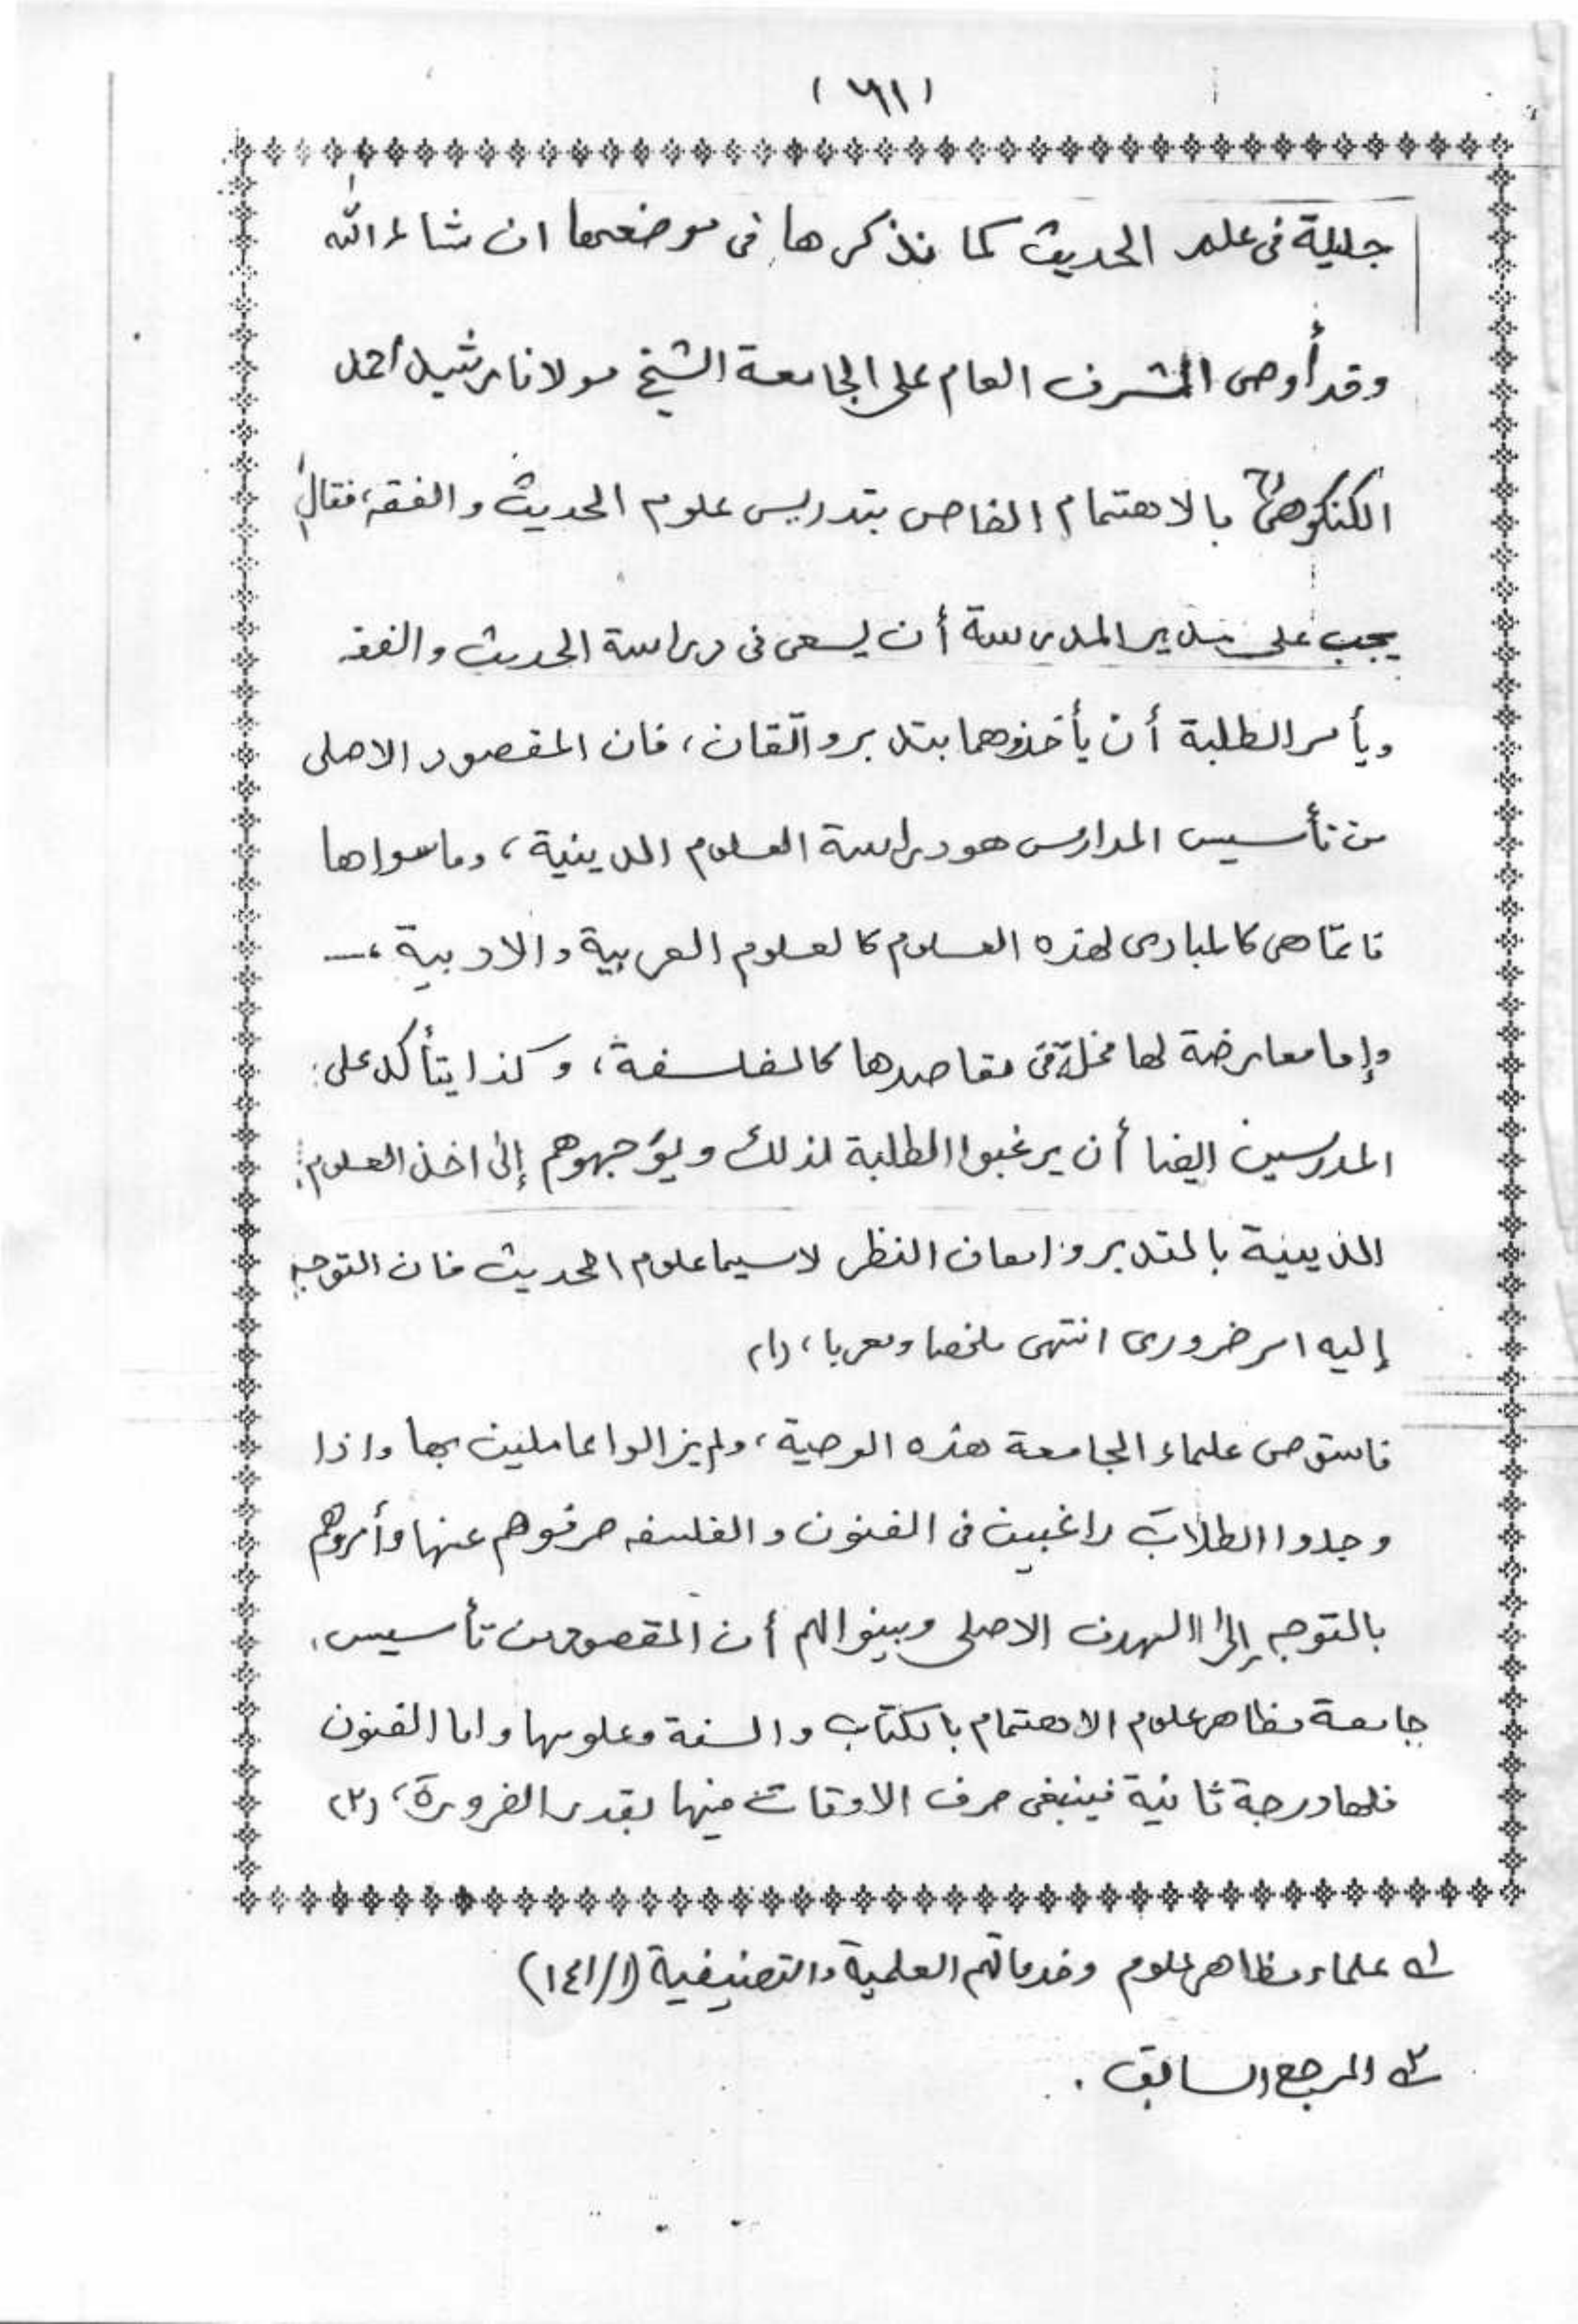 (٦١١)
جليلة فى علم الحديث كما نذكرها فى موضعها ان شاء الله
وقد أوصى المشرف العام على الجامعة الشيخ مولانا رشيد أحمد
الكنكوهىؒ بالاهتمام الخاص بتدريس علوم الحديث والفقه، فقال
يجب على مدير المدرسة أن يسعى فى دراسة الحديث والفقه
ويأمر الطلبة أن يأخذوهما بتدبر واتقان، فان المقصود الاصلى
من تأسيس المدارس هو دراسة العلوم الدينية، وما سواها
فانما هى كالمبادى لهذه العلوم كالعلوم العربية والادبية،—
وإما معارضة لها مخلة فى مقاصدها كالفلسفة، وكذا يتأكد على
المدرسين ايضا أن يرغبوا الطلبة لذلك ويوجهوهم إلى اخذ العلوم
الدينية بالتدبر وامعان النظر لاسيما علوم الحديث فان التوجه
إليه امر ضرورى انتهى ملخصا ومعربا، (١)
فاستوصى علماء الجامعة هذه الوصية، ولم يزالوا عاملين بها واذا
وجدوا الطلاب راغبين فى الفنون والفلسفه صرفوهم عنها وأمروهم
بالتوجه إلى الهدف الاصلى وبينوا لهم أن المقصود من تأسيس
جامعة مظاهر علوم الاهتمام بالكتاب والسنة وعلومها واما الفنون
فلها درجة ثانية فينبغى صرف الاوقات فيها بقدر الضرورة، (٢)
١؎ علماء مظاهر علوم وخدماتهم العلمية والتصنيفية (١/١٤١)
٢؎ المرجع السابق .